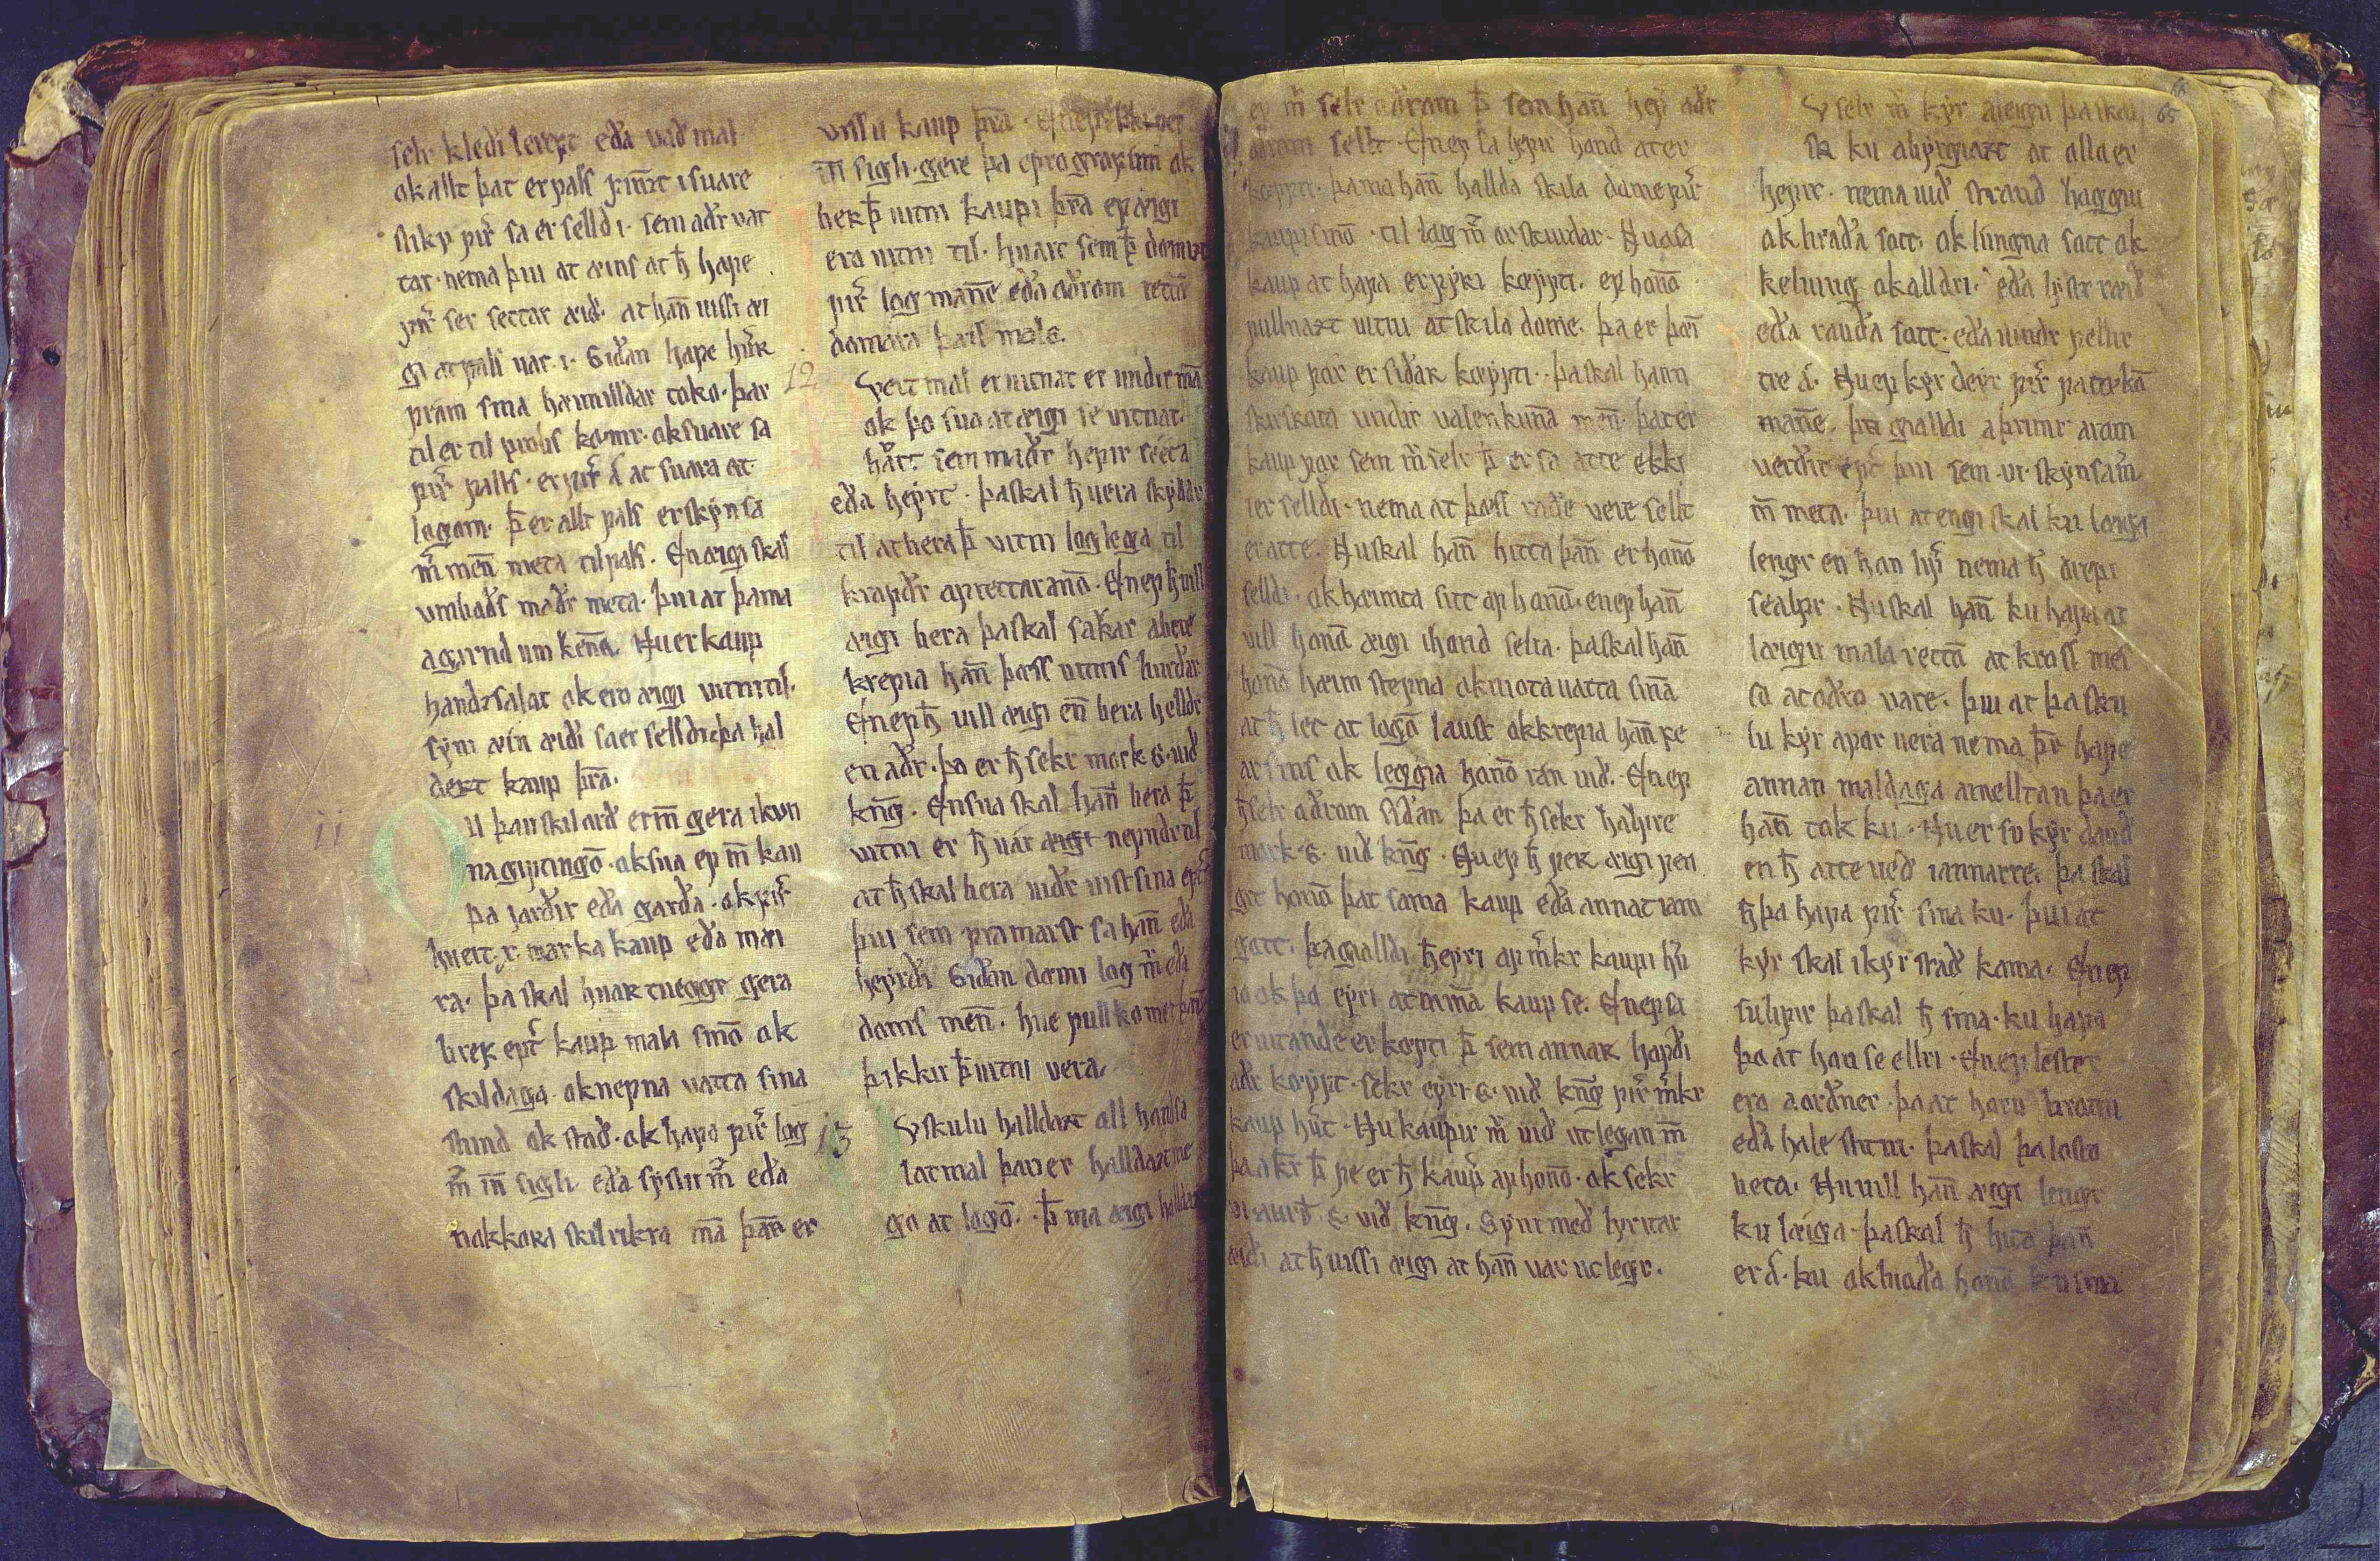 selr kledi lerept eða vað mal
ok allt þat er fals finnzt i suare
sliku fir̃ sa er selldi. sem aðr var
tar. nema þui at æins at ħ hafe
fir̃ ser settar æið. at han̄ uissi æi
gi at fals uar i. Siðan hafe hũʀ
fram sina hæimilldar toko. þar
til er til profs kømr. ok suare sa
fir̃ fals. er fir̃ a at suara at
logom. þ̄ er allt fals er skynsa
m̃ men̄ meta til fals. En æigi skal
vmboðs maðr meta. þuiat þa ma
agirnd um kēna. Nu er kaup
handzsalat ok ero æigi vitni til.
syni æin æiði sa er selldi. eða hal
dezt kaup þr̃a.
11
U þau skilorð er m̄ gera i kun
nagiptingō. ok sua ef m̄ kau
pa iarðir eða garða. ok fir̃
huert .x. marka kaup eða mæi
ra. þa skal huartueggr gera
bref ept̃ kaup mala sinō ok
skildaga. ok nefna vatta sina
stund ok stað. ok hafa fir̃ log
m̃ in̄ sigli. eða syslu m̃ eða
nokkora skilrikra m̄a þan̄ er
vissu kaup þr̃a. En ef
in̄ sigli. gere þa cyrografum ok
beʀ þ̄ uitni kaupi þr̃a ef æigi
ero uitni til. huart sem þ̄ dømizt
fir̃ logmanne eða oðrom rettū
domara þæss mals.
12
Vert mal er uitnat er undir m̄a
ok þo sua at æigi se vitnat.
hātt sem maðr hefir seeta
eða heyrt. þa skal ħ uera skylldr
til at bera þ̄ vitni loglega til
krafðr af rettaranō. En ef ħ uill
æigi bera þa skal sakar abere
krefia han̄ þæss uitnis burðar
En ef ħ uill æigi en̄ bera helldr
en aðr. þa er ħ sekr mork s. uið
kn̄g. En sua skal han̄ bera þ̄
vitni er ħ uar æigi nefndr til
at ħ skal bera uiðr uist sina ept̃
þui sem framarst sa han̄ eða
heyrði. Siðan dømi log m̃ eða
doms men̄. hue fullkomet þan̄
þikkir þ̄ uitni vera.
13
V skulu halldazt all handsa
lat mal þau er halldazt me
go at logō. þ̄ ma æigi halldazt
ef m̃ selr oðrom þ̄ sem han̄ hefr aðr
oðrom sellt. En ef sa hefir hand at er
køypti. þa ma han̄ hallda skila dome fir̃
kaupi sinō. til log m̃ ar skurdar. Nu a sa
kaup at hafa er fyrri køypti. ef honō
fullnazt uitni at skila dome. þa er þat
kaup fox er siðaʀ køypti. þa skal hann
skirskota undir valenkun̄a men̄. þat er
kaup fox sem m̃ selr þ̄ er sa atte ekki
i er selldi. nema at þæss raðe vere sellt
er atte. Nu skal han̄ hitta þan̄ er honō
selldi. ok hæimta sitt af honō. en ef han̄
uill honō æigi i hond selia. þa skal han̄
honō hæim stefna ok niota uatta sin̄a
at ħ let at logō laust ok krefia han̄ fe
ar sins ok leggia honō ran uið. En ef
ħ selr oðrom siðan þa er ħ sekr halfre
mork s. uið kn̄g. Nu ef ħ fæʀ æigi fen
git honō þat sama kaup eða annat iam
gott. þa gialldi ħ eyri af m̃kr kaupi hũ
io ok þo eyri at min̄a kaup se. En ef sa
er uitande er køypti þ̄ sem annaʀ hafði
aðr køypt. sekr eyri s. uið kn̄g fir̃ m̃kr
kaup hũt. Nu kaupir m̃ uið utlegan m̄
þa a kr̄ þ̄ fe er ħ kaupir af honō. ok sekr
vi aurū s. uið kn̄g. Syni með lyritar
æiði at ħ uissi æigi at han̄ var utlegr.
66
65
V selr m̃ kyr a leigu þa skal
sa ku abyrgiazt at alla er
hefir. nema uið strand hoggui
ok braða sott. ok lungna sott ok
kelung ok alldri. eða lystr ræið
eða rauða sott. eða undir fellr
tre a. Nu ef kyr deyr fir̃ fatøkā
manne. þa gialldi a þrimr arom
verðit ept̃ þui sem .vi. skynsam̃
m̄ meta. þui at engi skal ku læigia
lengr en han lifir nema ħ drepi
sealfr. Nu skal han̄ ku hafa at
læigu mala rettū at kross mes
so at oðro vare. þui at þa sku
lu kyr afar uera nema þr̃ hafe
annan maldaga a mellr̃tan þa er
han̄ tok ku. Nu er su kyr dauð
en ħ atte ueð i annarre. þa skal
ħ þa hafa fir̃ sina ku. þui at
kyr skal i kyr stað koma. En ef
su lifir þa skal ħ sina ku hafa
þo at hon se ellri. En ef lester
ero a orðner. þo at horn brotni
eða hale slitni. þa skal þa losto
beta. Nu uill han̄ æigi lengr
ku læiga. þa skal ħ hitta þan̄
er a. ku ok bioða honō ku sina